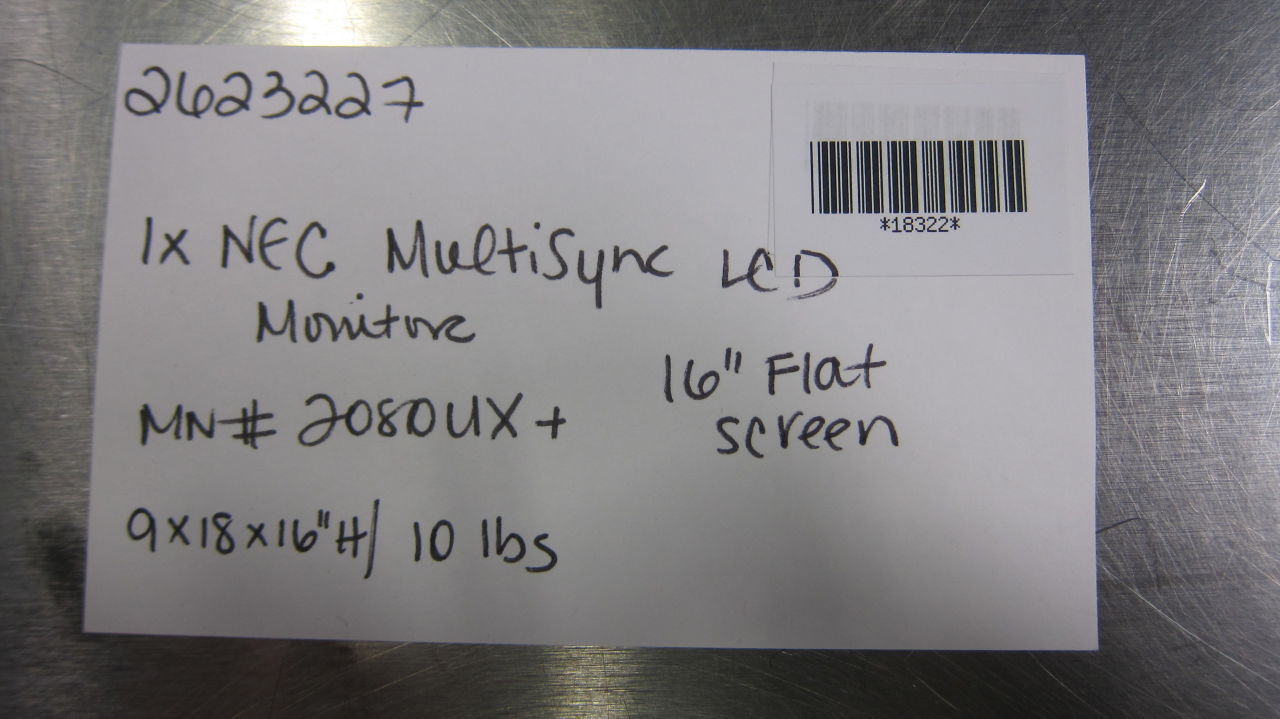 2623227
*18322*
1x NEC MultiSync LCD
Monitor
16" Flat
screen
MN# 2080UX+
9x18x16"H/ 10 lbs